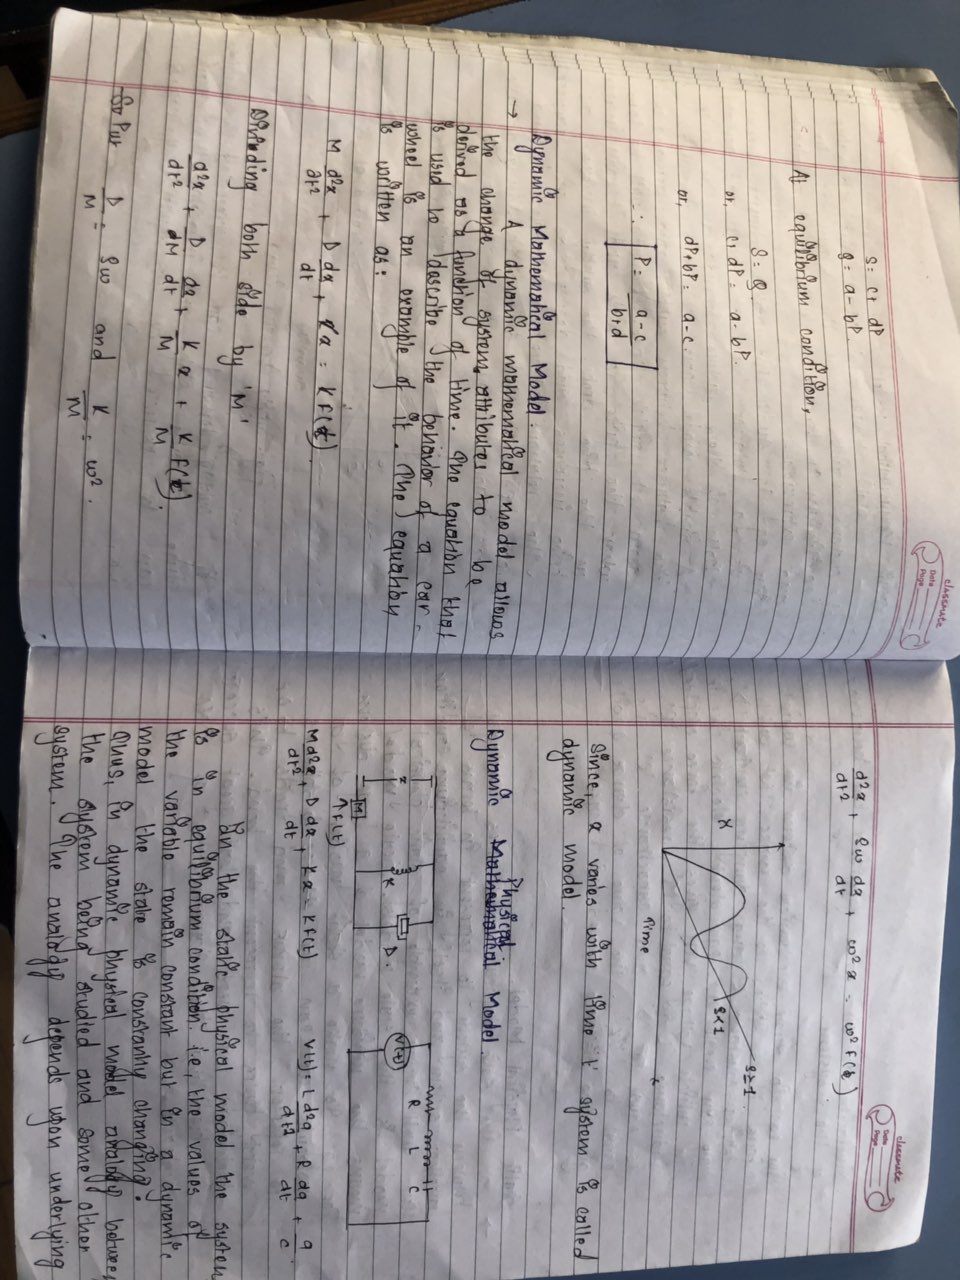 classmate
Date
Page
S = c + dP
Q = a - bP.
At equilibrium condition,
S = Q
or, c + dP = a - bP.
or, dP + bP = a - c.
∴ P = a - c / b + d
Dynamic Mathematical Model.
→ A dynamic mathematical model allows
the change of system attributes to be
derived as a function of time. The equation that
is used to describe the behavior of a car-
wheel is an example of it. The equation
is written as:
M d²x/dt² + D dx/dt + Kx = K F(t).
Dividing both side by 'M'
d²x/dt² + D/M dx/dt + K/M x + K/M F(t).
Put D/M = 2w and K/M = w².
classmate
Date
Page
d²x/dt² + 2w dx/dt + w²x = w² F(t)
X
Time
S<1
S≥1
Since, x varies with time 't' system is called
dynamic model.
Dynamic Physical Model.
x
M
↑F(t)
K
D.
V(t)
R
L
C
M d²x/dt² + D dx/dt + Kx = K F(t)
V(t) = L d²q/dt² + R dq/dt + q/c
In the static physical model the system
is in equilibrium condition. i.e, the values of
the variable remain constant but in a dynamic
model the state is constantly changing.
Thus, in dynamic physical model analogy between
the system being studied and some other
system. The analogy depends upon underlying